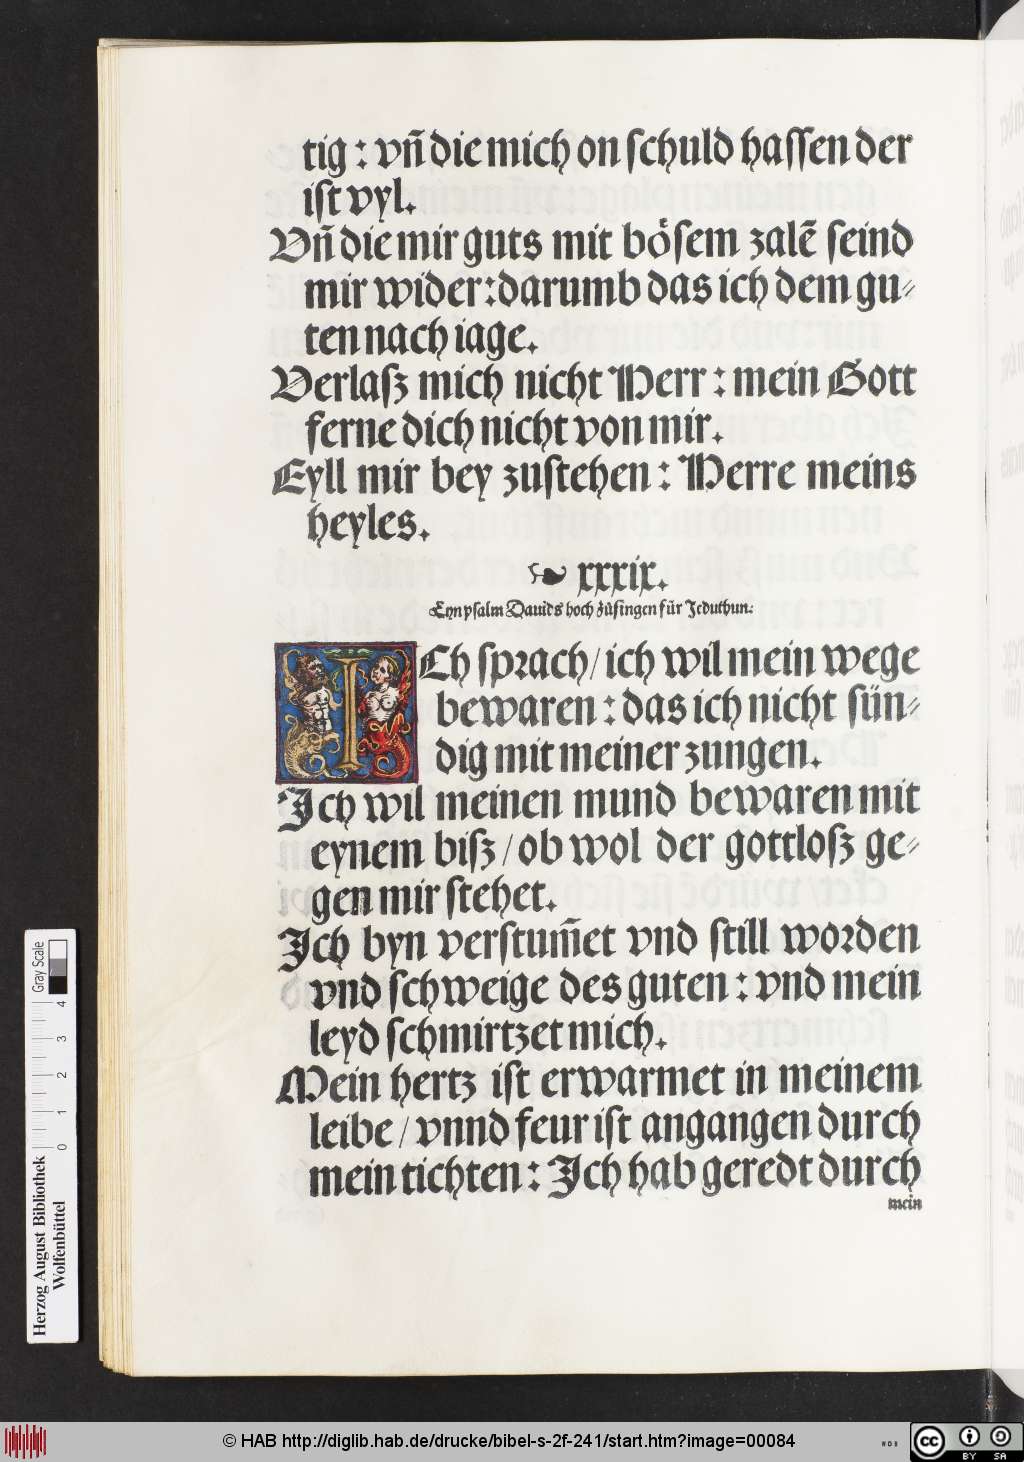 tig : vn̄ die mich on ſchuld haſſen der
iſt vyl.
Vn̄ die mir guts mit boͤſem zalē ſeind
mir wider:darumb das ich dem gu⸗
ten nach iage.
Verlaſz mich nicht Herr : mein Gott
ferne dich nicht von mir.
Eyll mir bey zuſtehen : Herre meins
heyles.
xxxix.
Eyn pſalm Dauids hoch zuͤſingen fuͤr Jeduthun:
ICh ſprach/ ich wil mein wege
bewaren : das ich nicht ſün⸗
dig mit meiner zungen.
Ich wil meinen mund bewaren mit
eynem biſz / ob wol der gottloſz ge⸗
gen mir ſtehet.
Ich byn verſtum̄et vnd ſtill worden
vnd ſchweige des guten : vnd mein
leyd ſchmirtzet mich.
Mein hertz iſt erwarmet in meinem
leibe / vnnd feur iſt angangen durch
mein tichten : Ich hab geredt durch
mein
Gray Scale
0 1 2 3 4
Herzog August Bibliothek
Wolfenbüttel
© HAB http://diglib.hab.de/drucke/bibel-s-2f-241/start.htm?image=00084
WDB
cc BY SA